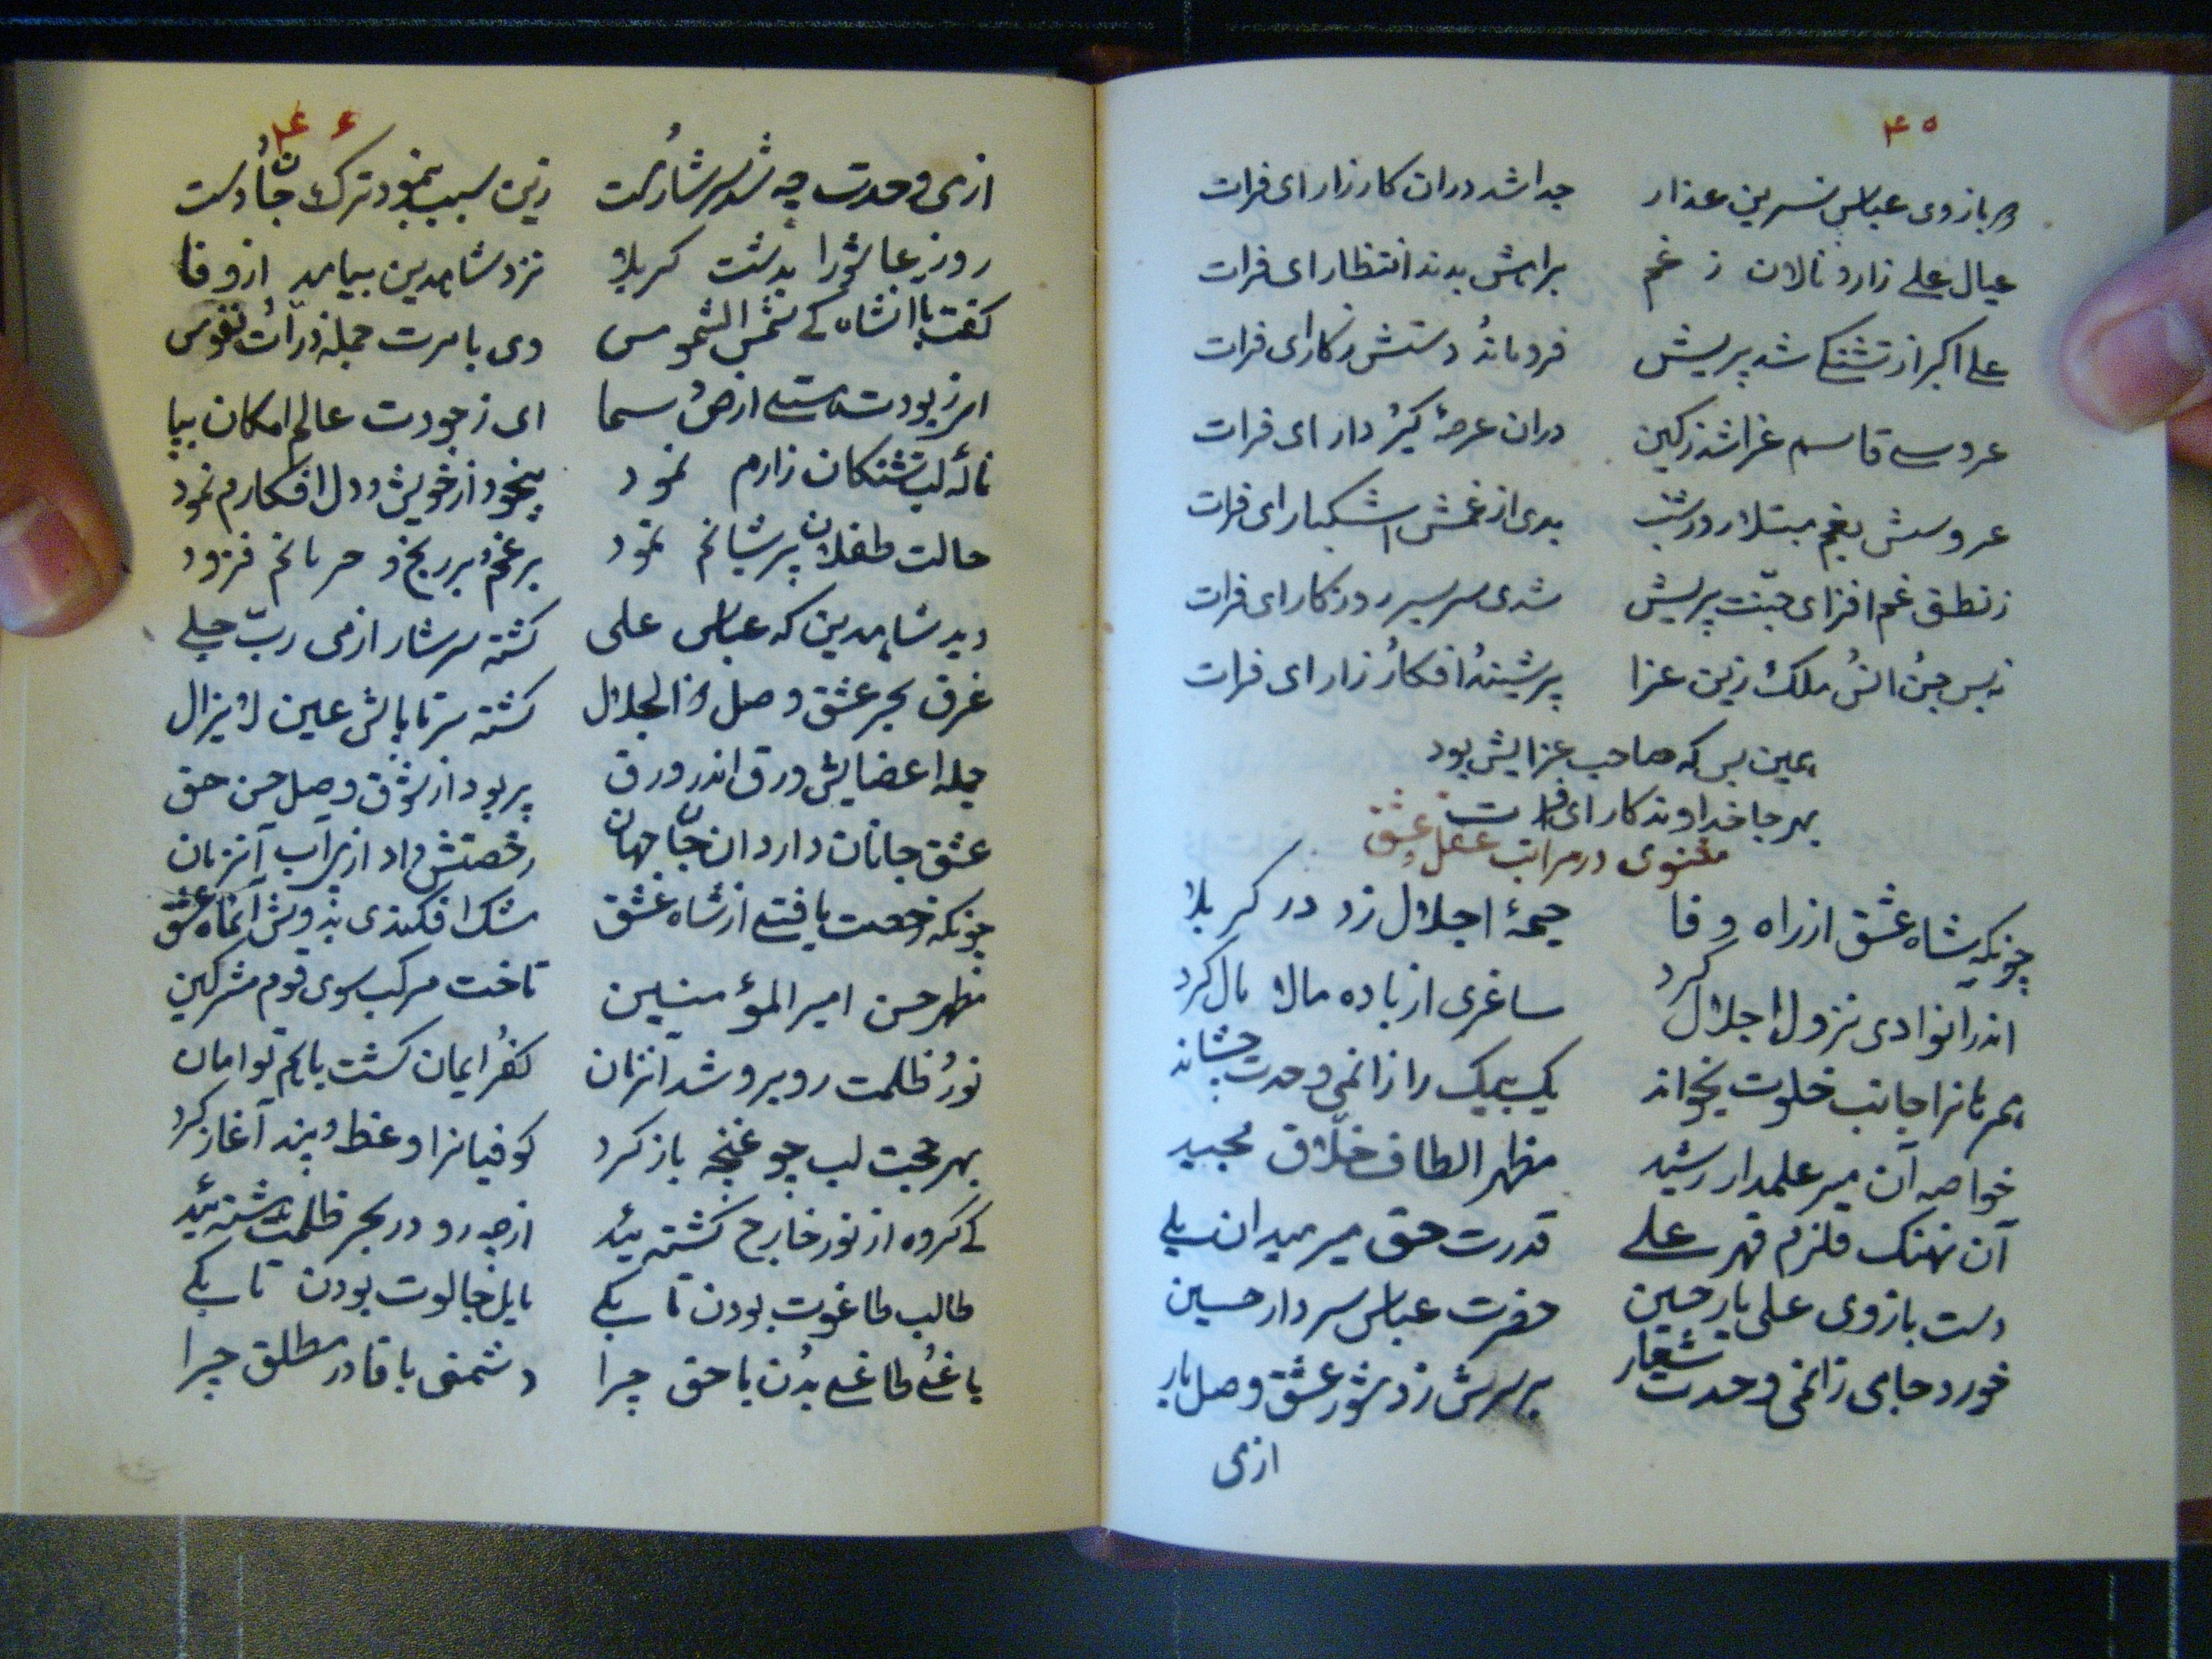 ۴۵
دو بازوی عباس نسرین عذار جدا شد دران کارزار ای فرات
عیال علی زار و نالان ز غم براهش بدند انتظار ای فرات
علی اکبر از تشنکی شد پریش فرو ماند دستش ز کار ای فرات
عروسی قاسم عزا شد ز کین دران عرصهٔ کیر و دار ای فرات
عروسش بغم مبتلا روز و شب بدی از غمش اشکبار ای فرات
ز نطق غم افزای پریش شدی سر بسر روزکار ای فرات
نه بس جن و انس و ملک زین عزا پریشند و افکار و زار ای فرات
همین بس که صاحب عزایش بود
بهر جا خداوندکار ای فرات
مثنوی در مراتب عقل و عشق
چونکه شاه عشق از راه وفا خیمهٔ اجلال زد در کربلا
اندرانوادی نزول اجلال کرد ساغری از باده مالامال کرد
همرهانرا جانب خلوت بخواند یک بیک را زانمی وحدت چشاند
خواصه آن میر علمدار رشید مظهر الطاف خلّاق مجید
آن نهنک قلزم قهر علی قدرت حق میر میدان یلی
دست بازوی علی یار حسین حضرت عباس سردار حسین
خورد جامی زانمی وحدت شعار بر سرش زد شور عشق وصل یار
ازمی
۴۶
ازمی وحدت چه شد سرشار و مست زین سبب بنمود ترک جان و دست
روز عاشورا بدشت کربلا نزد شاهدین بیامد از وفا
کفت با انشاه کی شمس الشموس وی بامرت جمله ذرّات نفوس
ای ز جودت عالم امکان بپا
نالهٔ لب تشنکان زارم نمود بیخود از خویش و دل افکارم نمود
حالت طفلان پریشانم نمود بر غم و بر رنج و حرمانم فزود
دید شاهدین که عباس علی کشته سرشار ازمی ربّ جلی
غرق بحر عشق وصل ذوالجلال کشته سر تا پاش عین لایزال
جمله اعضایش ورق اندر ورق پر بود از شوق وصل حسن حق
عشق جانان دارد ان جان جهان رخصتش داد از بر آب آنزمان
چونکه رخصت یافتی از شاه عشق مشک افکندی بدوشش آنماه عشق
مظهر حسن امیر المؤمنین تاخت مرکب سوی قوم مشرکین
نور و ظلمت روبرو شد آنزمان کفر و ایمان کشت باهم توامان
بهر حجت لب چو غنچه باز کرد کوفیانرا وعظ و پند آغاز کرد
کی کروه از نور خارج کشته‌ئید ازچه رو در بحر ظلمت هشته‌ئید
طالب طاغوت بودن تا بکی مایل جالوت بودن تا بکی
یاغی و طاغی بدن با حق چرا دشمنی با قادر مطلق چرا